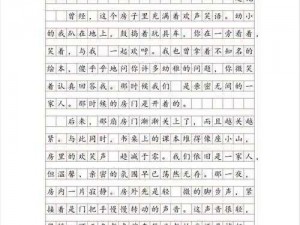 曾经，这个房子里充满着欢声笑语。幼小
的我趴在地上，鼓捣着玩具车。你在一旁看着，
笑着，与我一起欢呼。我也曾拿着不知名的
绘本，傻乎乎地问你许多幼稚的问题，你微笑
着认真回答我。那时候我们 是亲密无间的一
家人。那时候的房门是开着的。
后来，那扇房门渐渐关上了，而且越关越
紧。与此同时，书桌上的课本堆得像座小山，
房里的欢笑声 趋减于零。我们依旧是一家人，
但温馨、亲密的氛围早已荡然无存。一夜，
房内一片寂静。房外光是轻 微的脚步声，接
着是门把手慢慢转动的声音。这声音很轻，